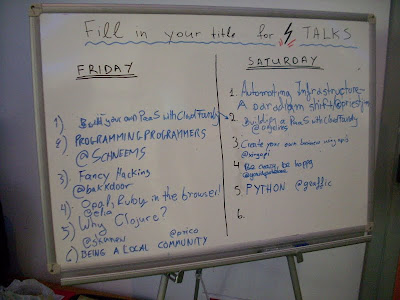 Fill in your title for ⚡ TALKS
FRIDAY
1) Build your own PaaS with Cloud Foundry
2) PROGRAMMING PROGRAMMERS
@SCHNEEMS
3) Fancy Hacking
@bakkdoor
4) Opal, Ruby in the browser!
@elia
5) Why Clojure?
6) BEING A LOCAL COMMUNITY
@prico
SATURDAY
1. Automating Infrastructure-
A paradigm shift
2. Building a PaaS with Cloud Foundry
3 Create your own business using api's
4 Be crazy, be happy
5 PYTHON @graffic
6.